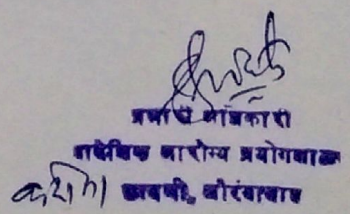 प्रभारी अधिकारी
प्रादेशिक आरोग्य प्रयोगशाळा
करिता छावणी, औरंगाबाद